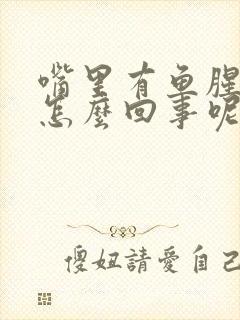 嘴里有鱼腥
怎麼回事呢
傻妞請愛自己